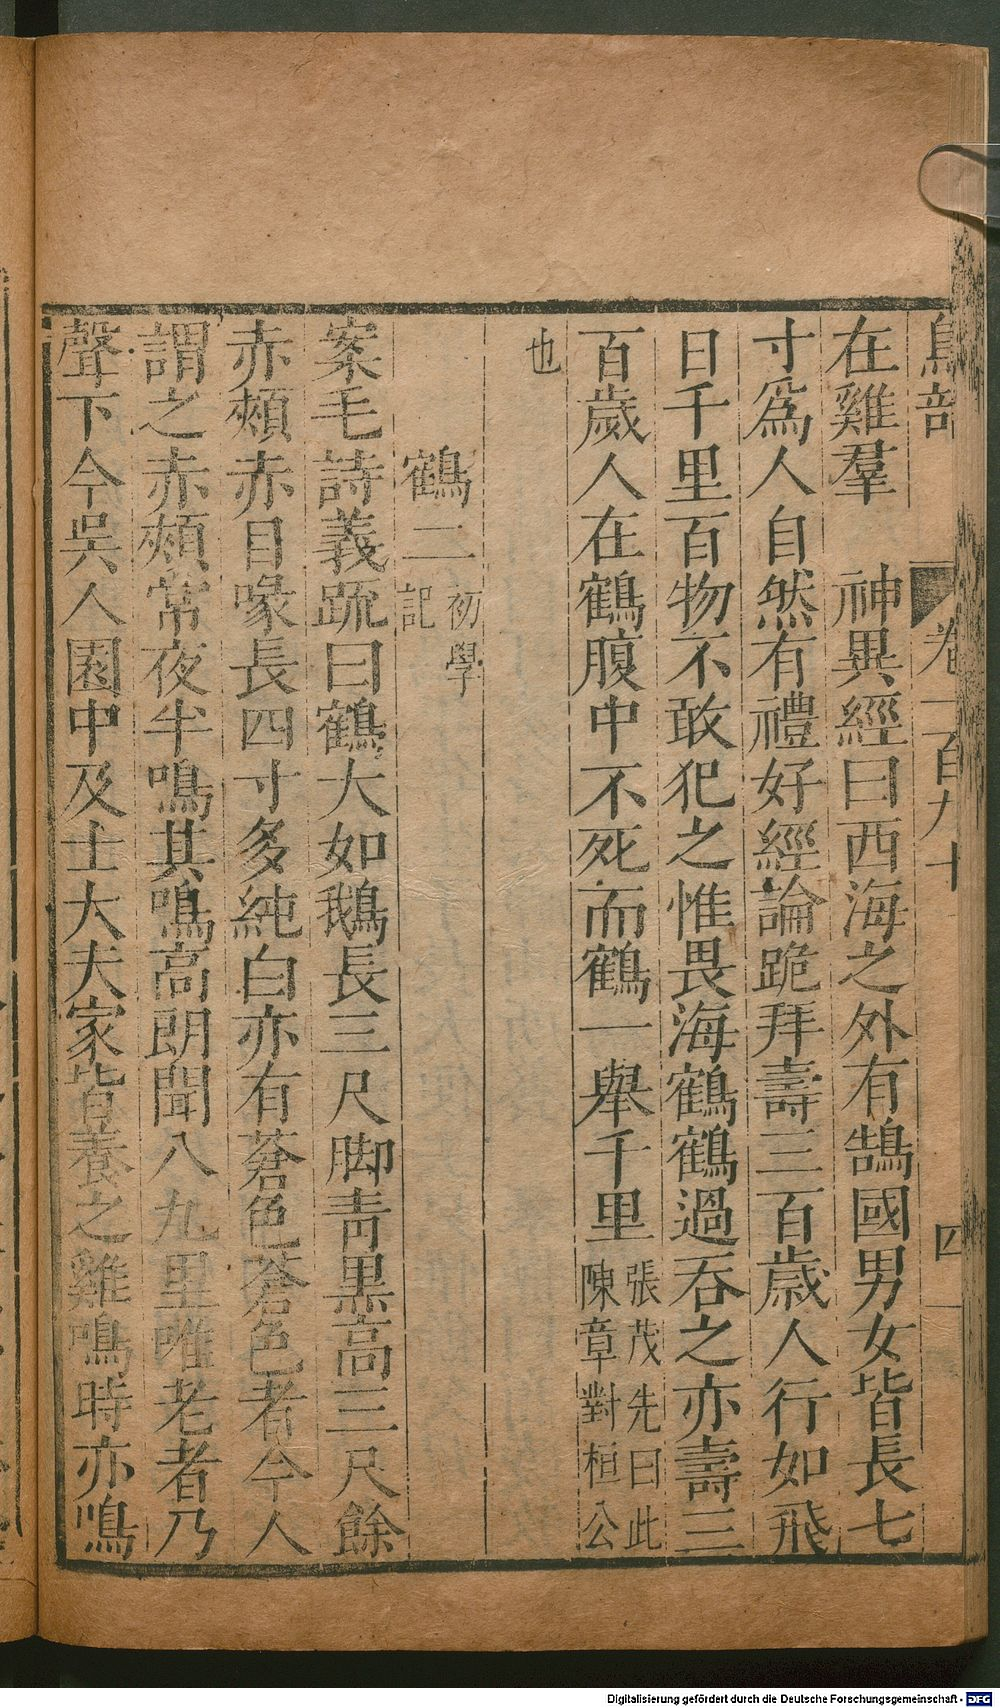 鳥部 卷一百九十 四
在雞羣 神異經曰西海之外有鵠國男女皆長七
寸爲人自然有禮好經論跪拜壽三百歲人行如飛
日千里百物不敢犯之惟畏海鶴鶴過吞之亦壽三
百歲人在鶴腹中不死而鶴一舉千里張茂先曰此陳章對桓公
也
鶴二初學記
案毛詩義疏曰鶴大如鵝長三尺脚靑黑高三尺餘
赤頰赤目喙長四寸多純白亦有蒼色蒼色者今人
謂之赤頰常夜半鳴其鳴高朗聞八九里唯老者乃
聲下今吳人園中及士大夫家皆養之雞鳴時亦鳴
Digitalisierung gefördert durch die Deutsche Forschungsgemeinschaft - DFG